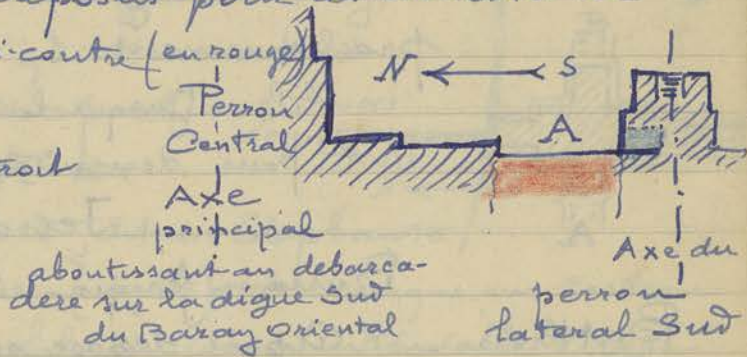 disposées pour
i-contre (en rouge)
N S
Perron
Central
A
roit
Axe
principal
aboutissant au debarca-
dere sur la digue Sud
du Baray Oriental
Axe du
perron
lateral Sud